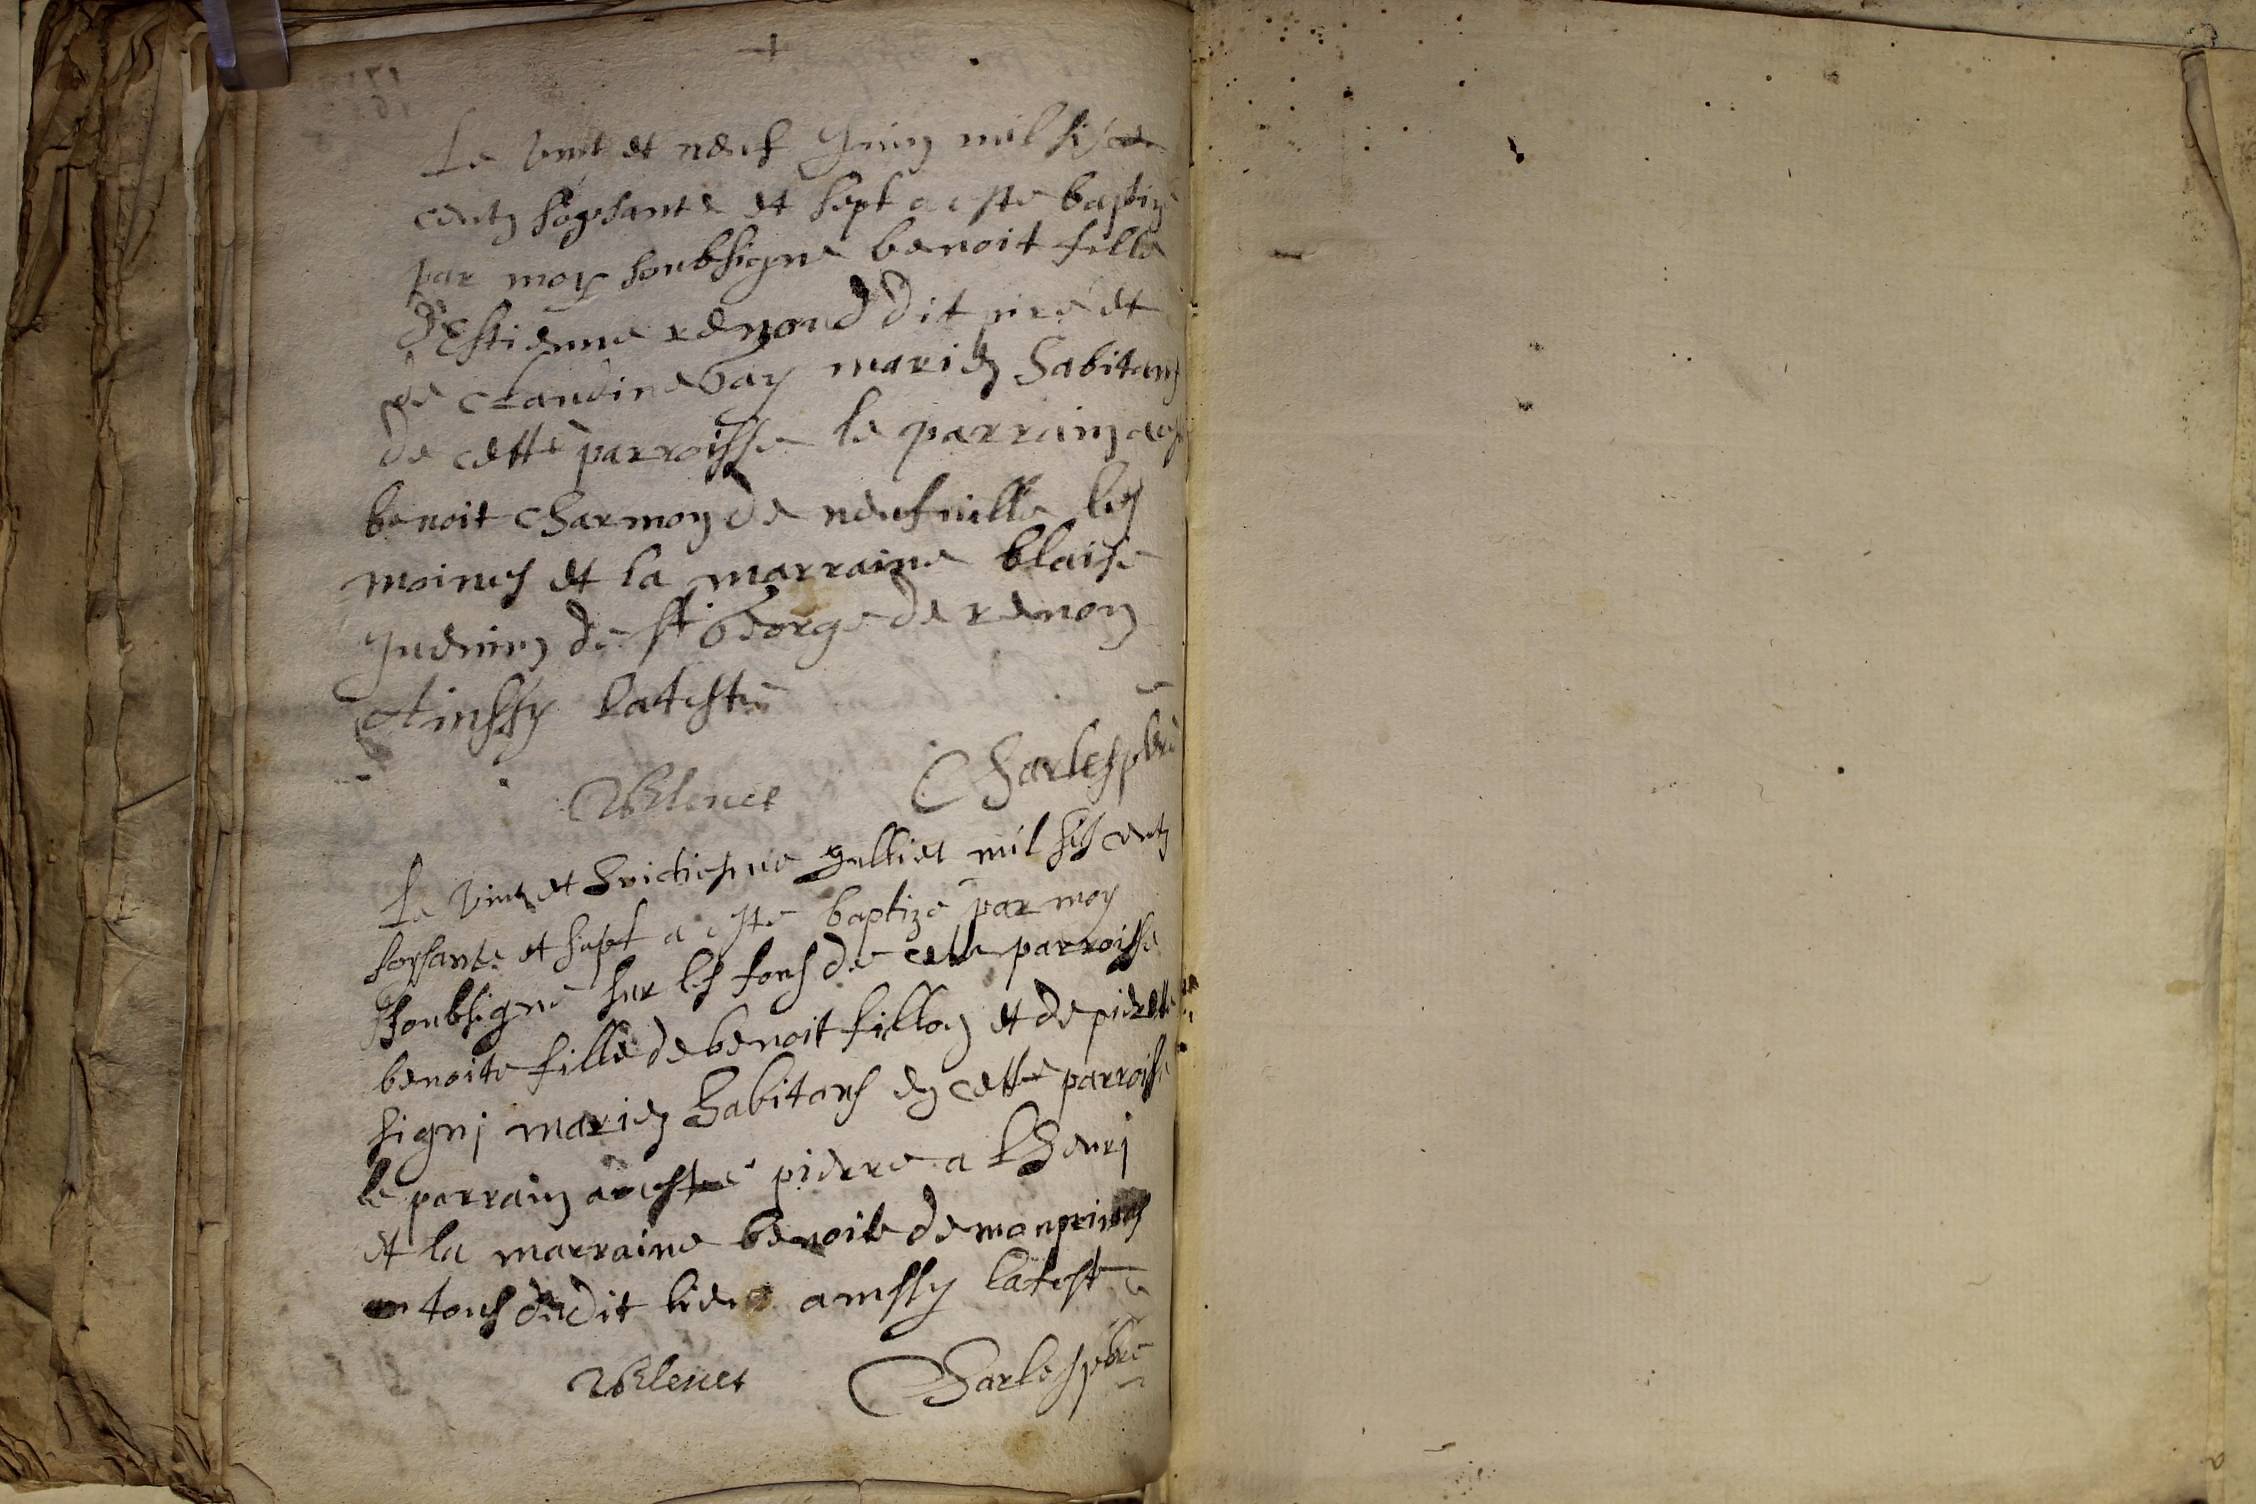 Le vint et neuf Juin mil six
centz soysante et sept a este baptizé
par moy soubsigne benoit fille
d'Estienne renoud dit piré et
de Claudine bay mariez habitans
de cette parroisse le parrain a esté
benoit charmoy de neufville les
moines et la marraine blaise
Juenin de st George de renon
Ainssy latesté
Charles pbre
Le vint et huictiesme Jullier mil six centz
soysante et sept a esté baptizé par moy
soubsigné sur les fons de cette parroisse
benoite fille de benoit fillon et de pierrette
signj mariez habitans en cette parroisse
le parrain a esté pierre a thenrj
et la marraine benoite de monprines
tous dudit lieu ainssy latesté
Charles pbre